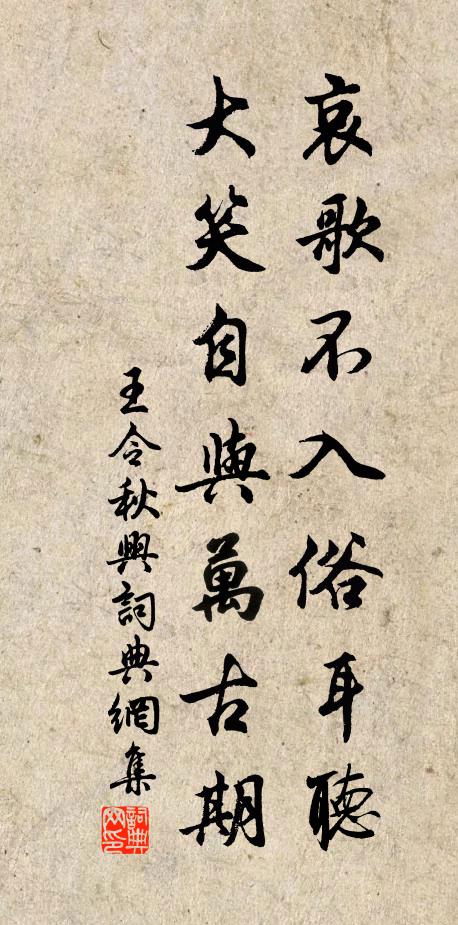 哀歌不入俗耳聽
大笑自與萬古期
王令秋興詞典網集
詞典网印